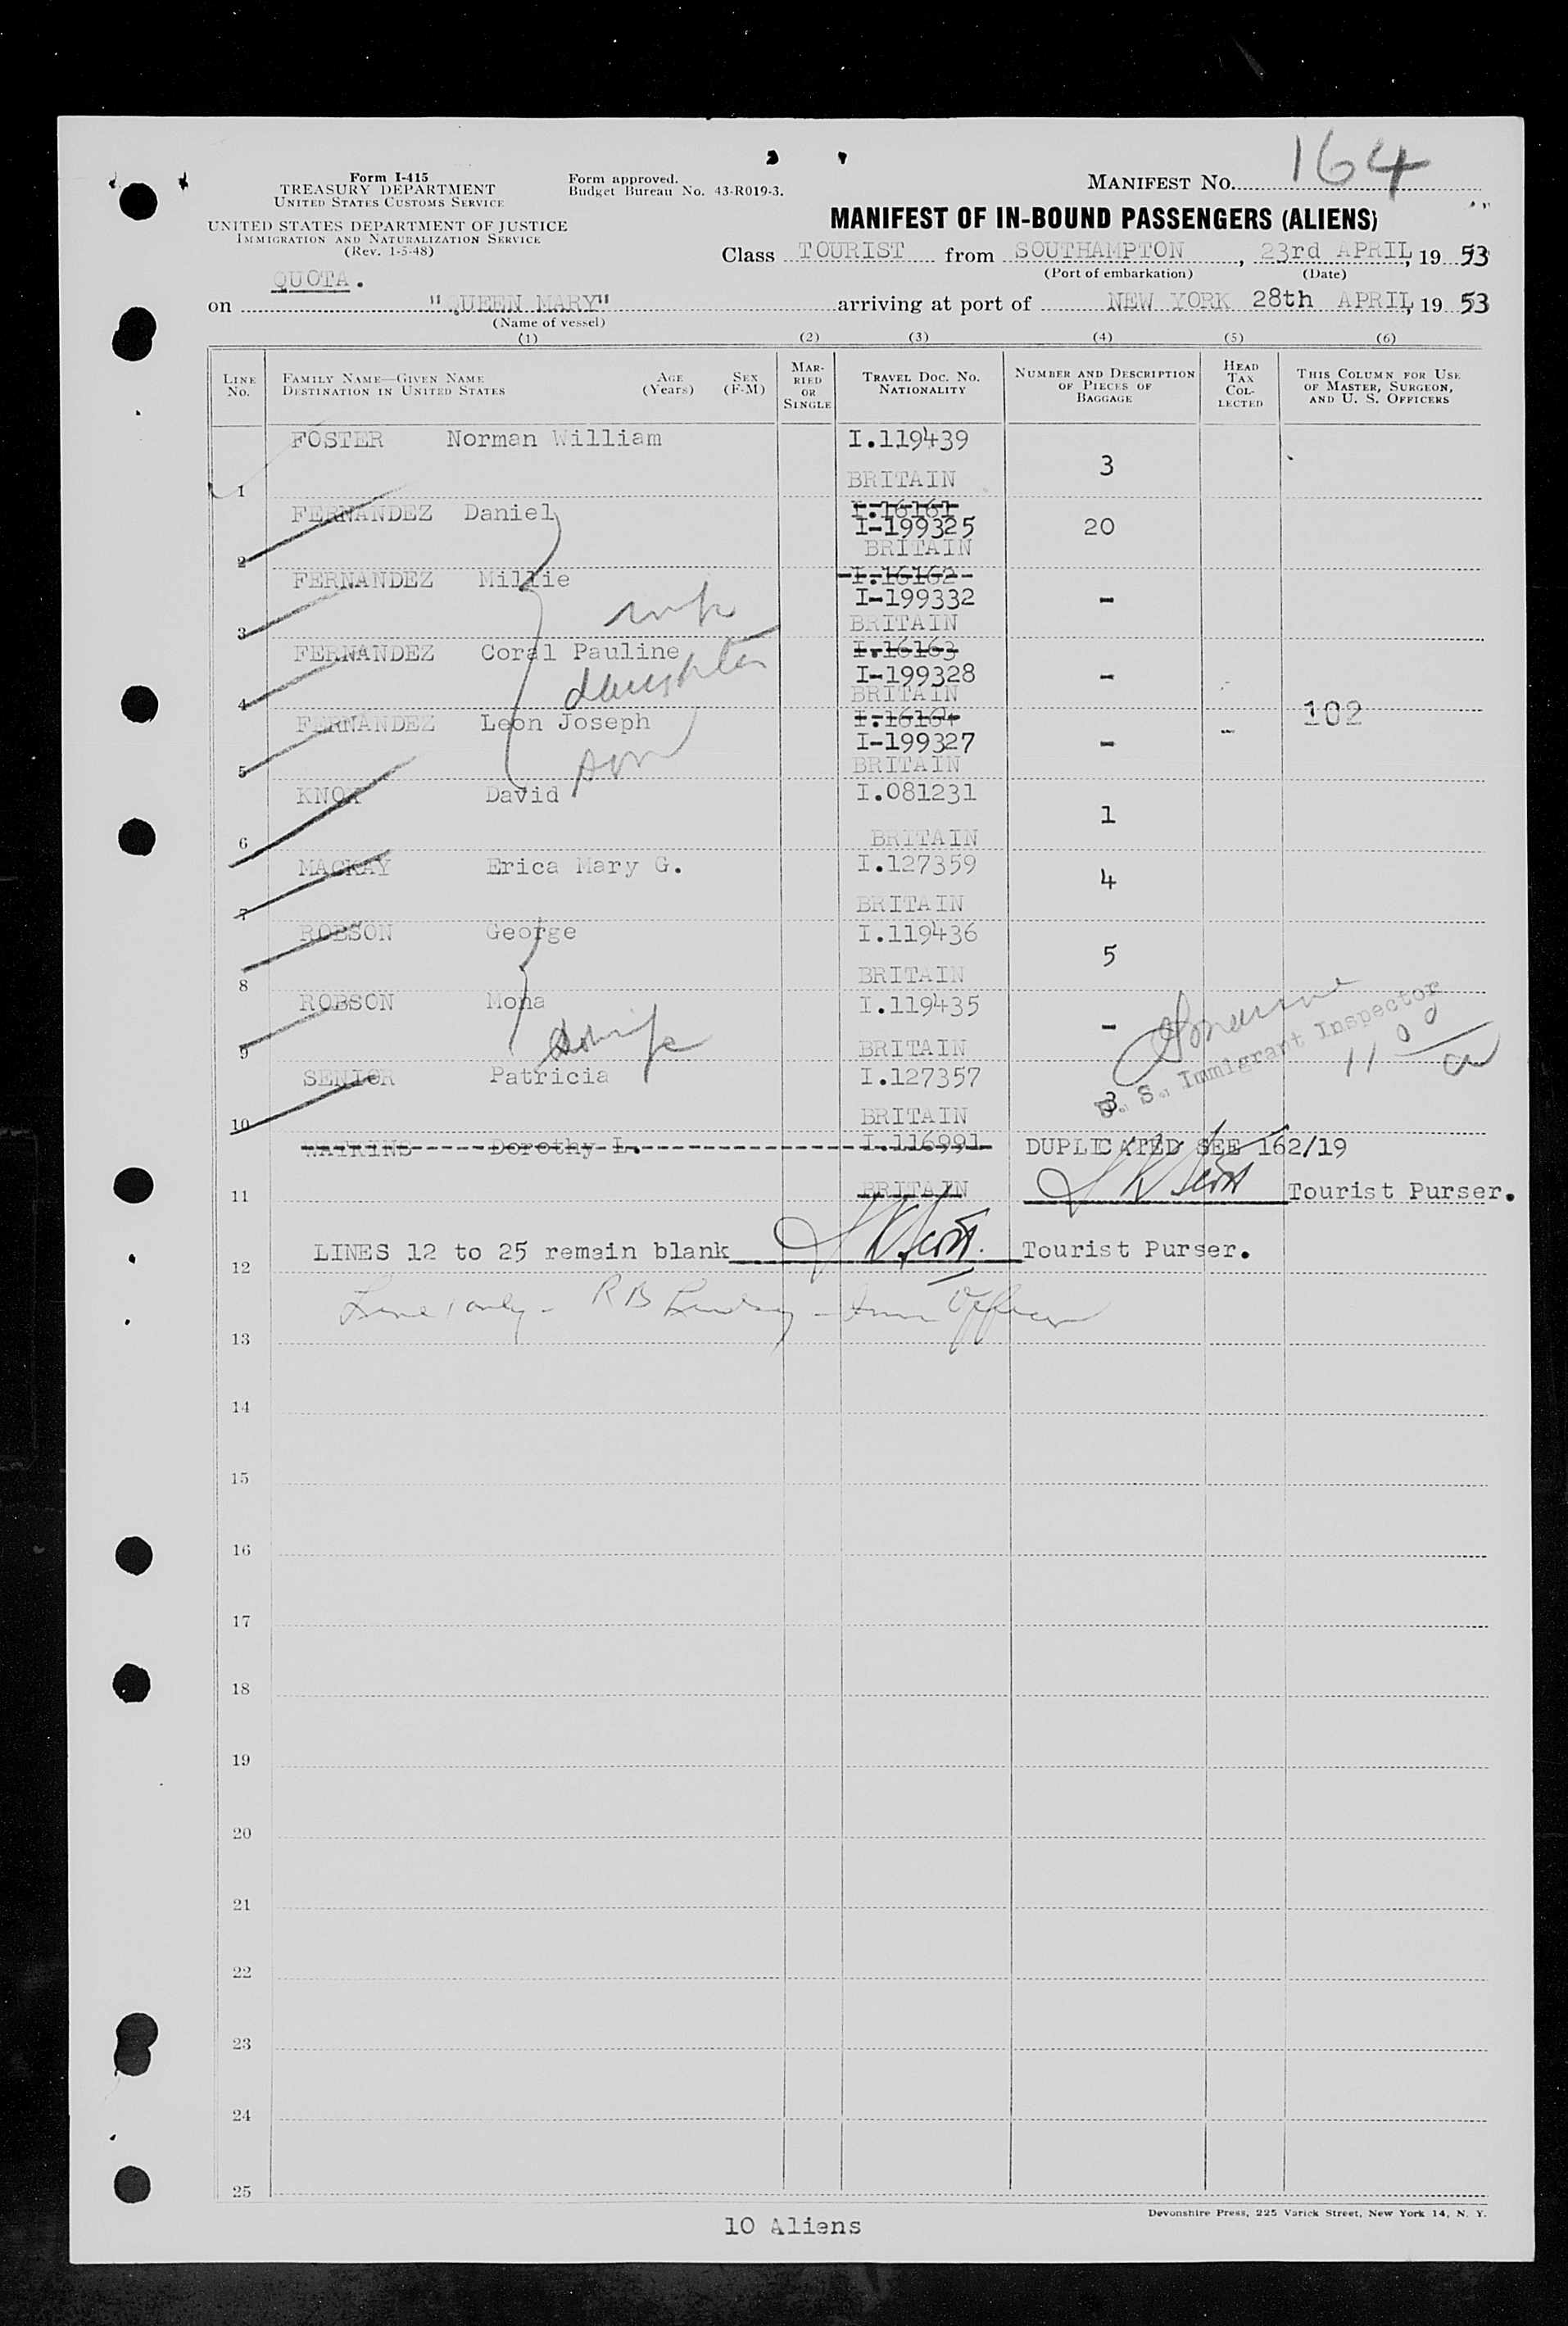 164
Form I-415
TREASURY DEPARTMENT
UNITED STATES CUSTOMS SERVICE
Form approved.
Budget Bureau No. 43-R019-3.
MANIFEST No.
UNITED STATES DEPARTMENT OF JUSTICE
IMMIGRATION AND NATURALIZATION SERVICE
(Rev. 1-5-48)
MANIFEST OF IN-BOUND PASSENGERS (ALIENS)
Class TOURIST from SOUTHAMPTON, 23rd APRIL, 19 53
(Port of embarkation) (Date)
QUOTA.
on "QUEEN MARY" arriving at port of NEW YORK 28th APRIL, 19 53
(Name of vessel)
(1) (2) (3) (4) (5) (6)
LINE No. FAMILY NAME—GIVEN NAME DESTINATION IN UNITED STATES AGE (Years) SEX (F-M) MARRIED OR SINGLE TRAVEL DOC. NO. NATIONALITY NUMBER AND DESCRIPTION OF PIECES OF BAGGAGE HEAD TAX COLLECTED THIS COLUMN FOR USE OF MASTER, SURGEON, AND U. S. OFFICERS
FOSTER Norman William I.119439
1 BRITAIN 3
FERNANDEZ Daniel I.16161
I-199325 20
2 BRITAIN
FERNANDEZ Millie I.16162
wife I-199332 -
3 BRITAIN
FERNANDEZ Coral Pauline I.16163
daughter I-199328 -
4 BRITAIN
FERNANDEZ Leon Joseph I.16164 102
son I-199327 -
5 BRITAIN
KNOX David I.081231
6 BRITAIN 1
MACKAY Erica Mary G. I.127359
7 BRITAIN 4
ROBSON George I.119436
8 BRITAIN 5
ROBSON Mona I.119435 -
9 wife BRITAIN
U. S. Immigrant Inspector
SENIOR Patricia I.127357
10 BRITAIN 3
WATKINS Dorothy L. I.116991 DUPLICATED SEE 162/19
11 BRITAIN Scott Tourist Purser.
12 LINES 12 to 25 remain blank Scott. Tourist Purser.
13 Line 1 only - R B Lindsay - Imm Officer
14
15
16
17
18
19
20
21
22
23
24
25
Devonshire Press, 225 Varick Street, New York 14, N. Y.
10 Aliens